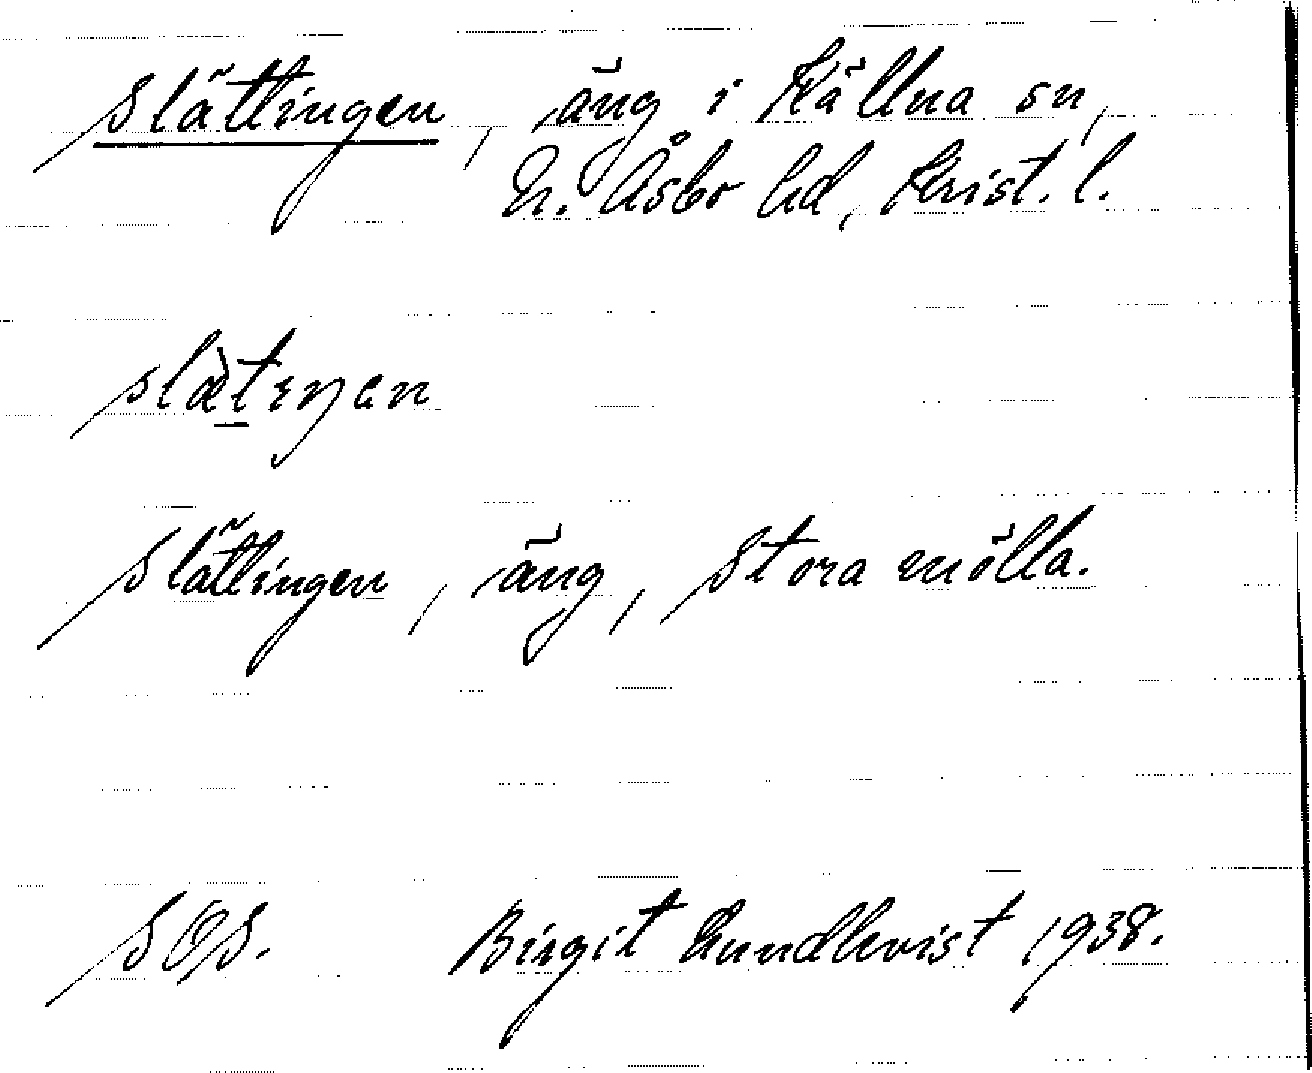 Slättingen, äng i Källna sn,
N. Åsbo hd, Krist. l.
slæ̀tɪŋen
Slättingen, äng, Stora mölla.
SOS. Birgit Lundkvist 1938.